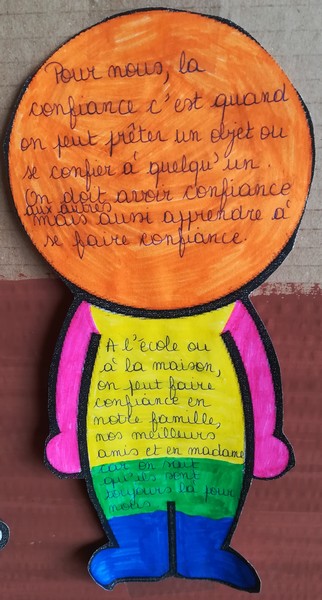 Pour nous, la
confiance c'est quand
on peut prêter un objet ou
se confier à quelqu'un.
On doit avoir confiance
aux autres
mais aussi apprendre à
se faire confiance.
A l'école ou
à la maison,
on peut faire
confiance en
notre famille,
nos meilleurs
amis et en madame
car on sait
qu'ils sont
toujours là pour
nous.